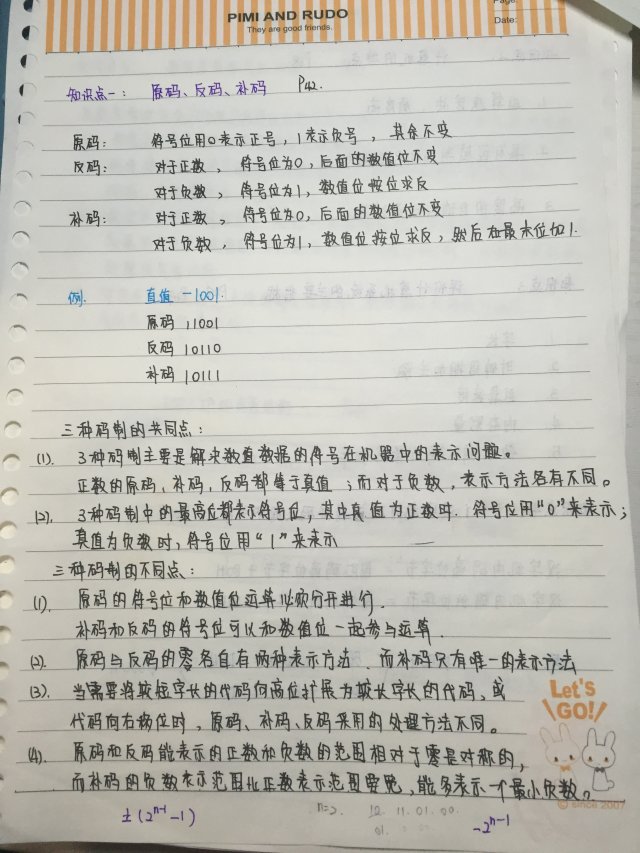 PIMI AND RUDO
They are good friends.
Page:
Date:
知识点一： 原码、反码、补码 P42.
原码： 符号位用0表示正号，1表示负号，其余不变
反码： 对于正数，符号位为0，后面的数值位不变
对于负数，符号位为1，数值位按位求反
补码： 对于正数，符号位为0，后面的数值位不变
对于负数，符号位为1，数值位按位求反，然后在最末位加1.
例. 真值 -1001.
原码 11001
反码 10110
补码 10111
三种码制的共同点：
(1). 3种码制主要是解决数值数据的符号在机器中的表示问题。
正数的原码、补码、反码都等于真值；而对于负数，表示方法各有不同。
(2). 3种码制中的最高位都表示符号位，其中真值为正数时. 符号位用“0”来表示；
真值为负数时，符号位用“1”来表示
三种码制的不同点：
(1). 原码的符号位和数值位运算必须分开进行.
补码和反码的符号位可以和数值位一起参与运算.
(2). 原码与反码的零各自有两种表示方法. 而补码只有唯一的表示方法
(3). 当需要将较短字长的代码向高位扩展为较长字长的代码、或
代码向右移位时，原码、补码、反码采用的处理方法不同。
(4). 原码和反码能表示的正数和负数的范围相对于零是对称的，
而补码的负数表示范围比正数表示范围要宽，能多表示一个最小负数。
Let's GO!
© since 2007
±(2ⁿ⁻¹-1)
n=2. 10. 11. 01. 00.
01.
-2ⁿ⁻¹